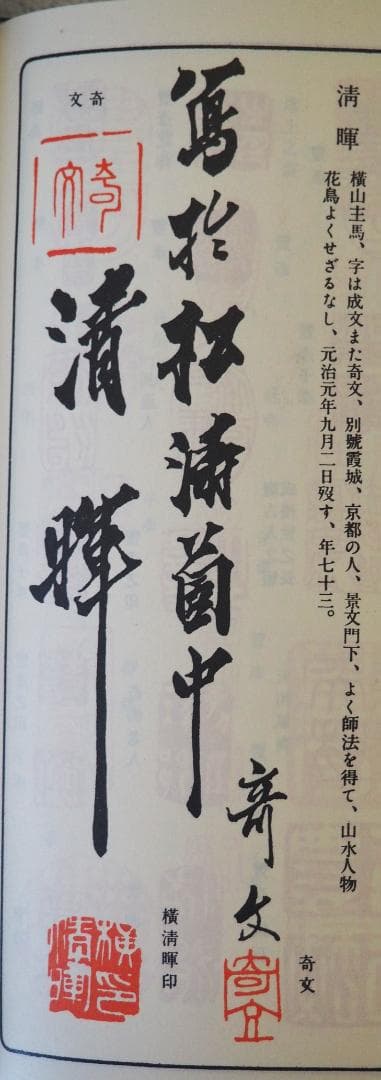 淸暉
橫山主馬、字は成文また奇文、別號霞城、京都の人、景文門下、よく師法を得て、山水人物
花鳥よくせざるなし、元治元年九月二日歿す、年七十三。
奇文
奇文
奇文
寫於松濤箇中
橫淸暉印
清暉
奇文
奇文
橫印清暉